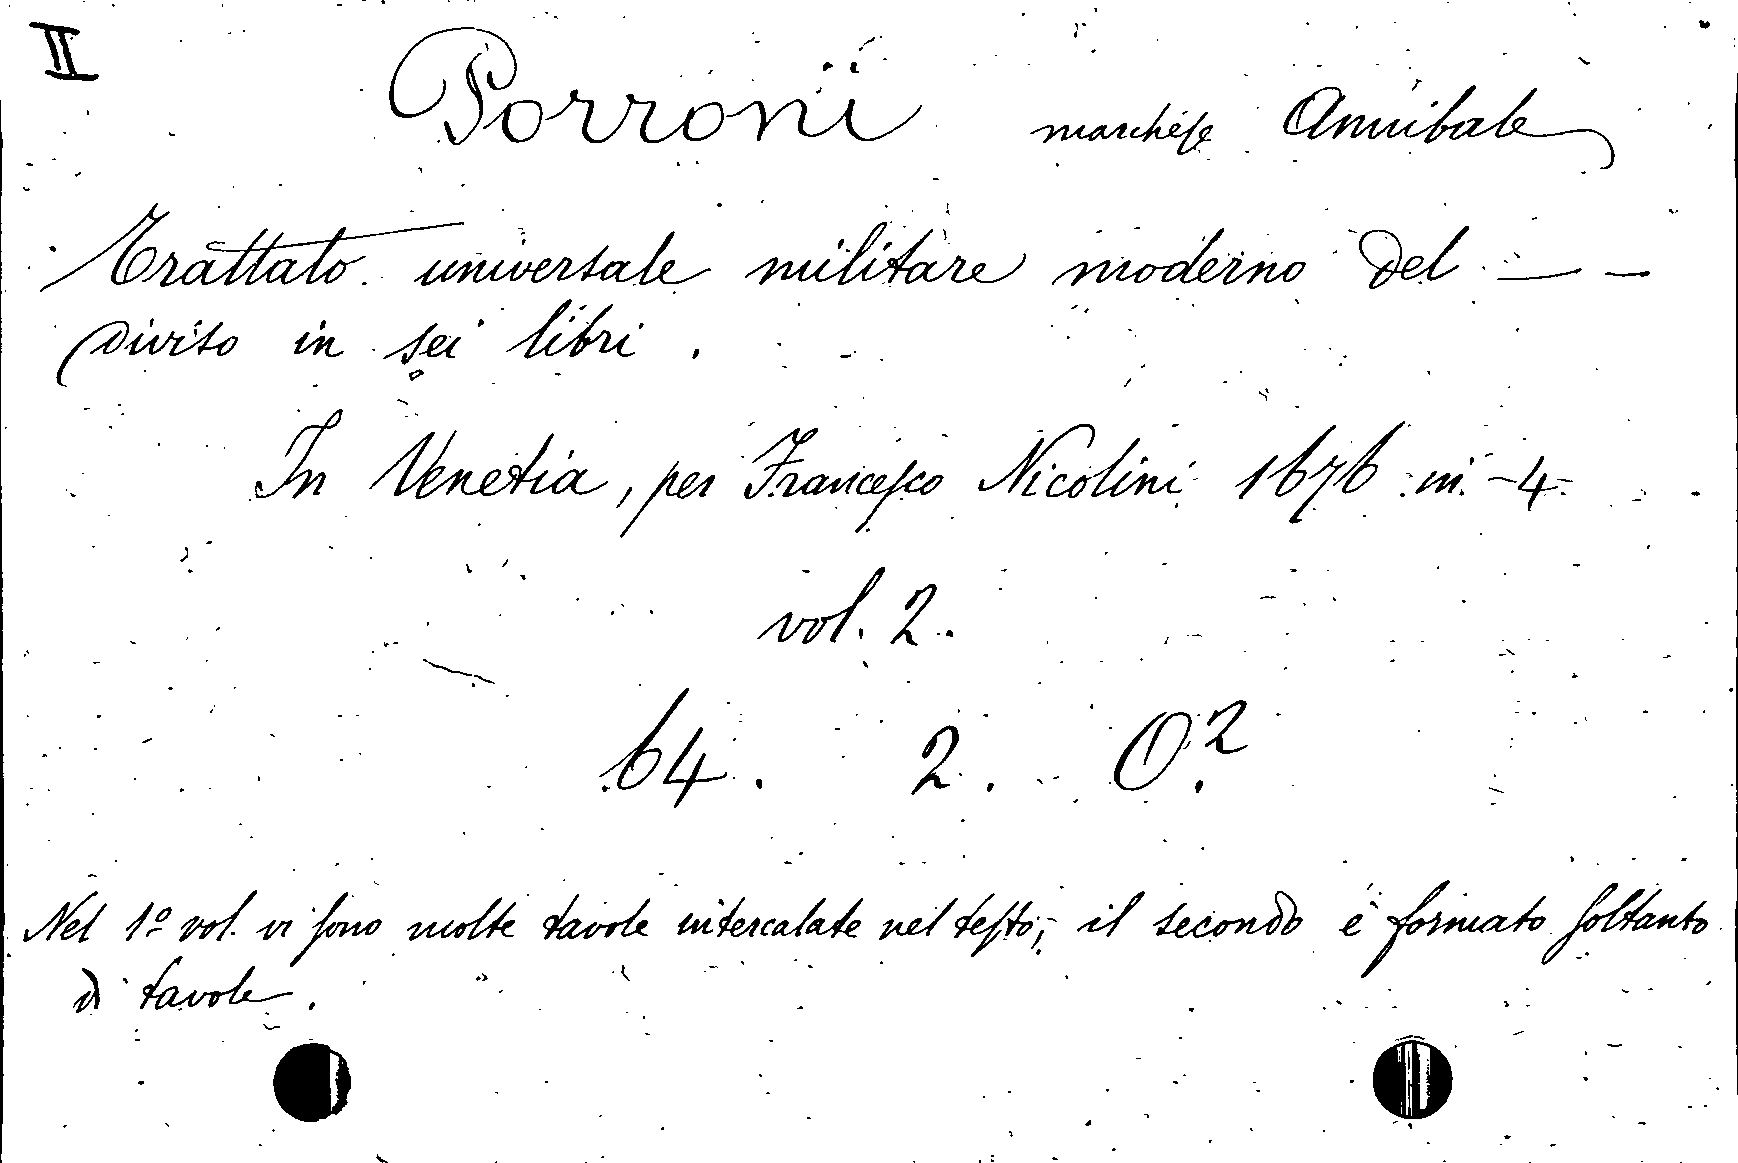 II
Porroni marchese Annibale
Trattato universale militare moderno del — —
diviso in sei libri.
In Venetia, per Francesco Nicolini 1676 in-4.
vol. 2.
64. 2. O.2
Nel 1º vol. vi sono molte tavole intercalate nel testo; il secondo è formato soltanto
di tavole.